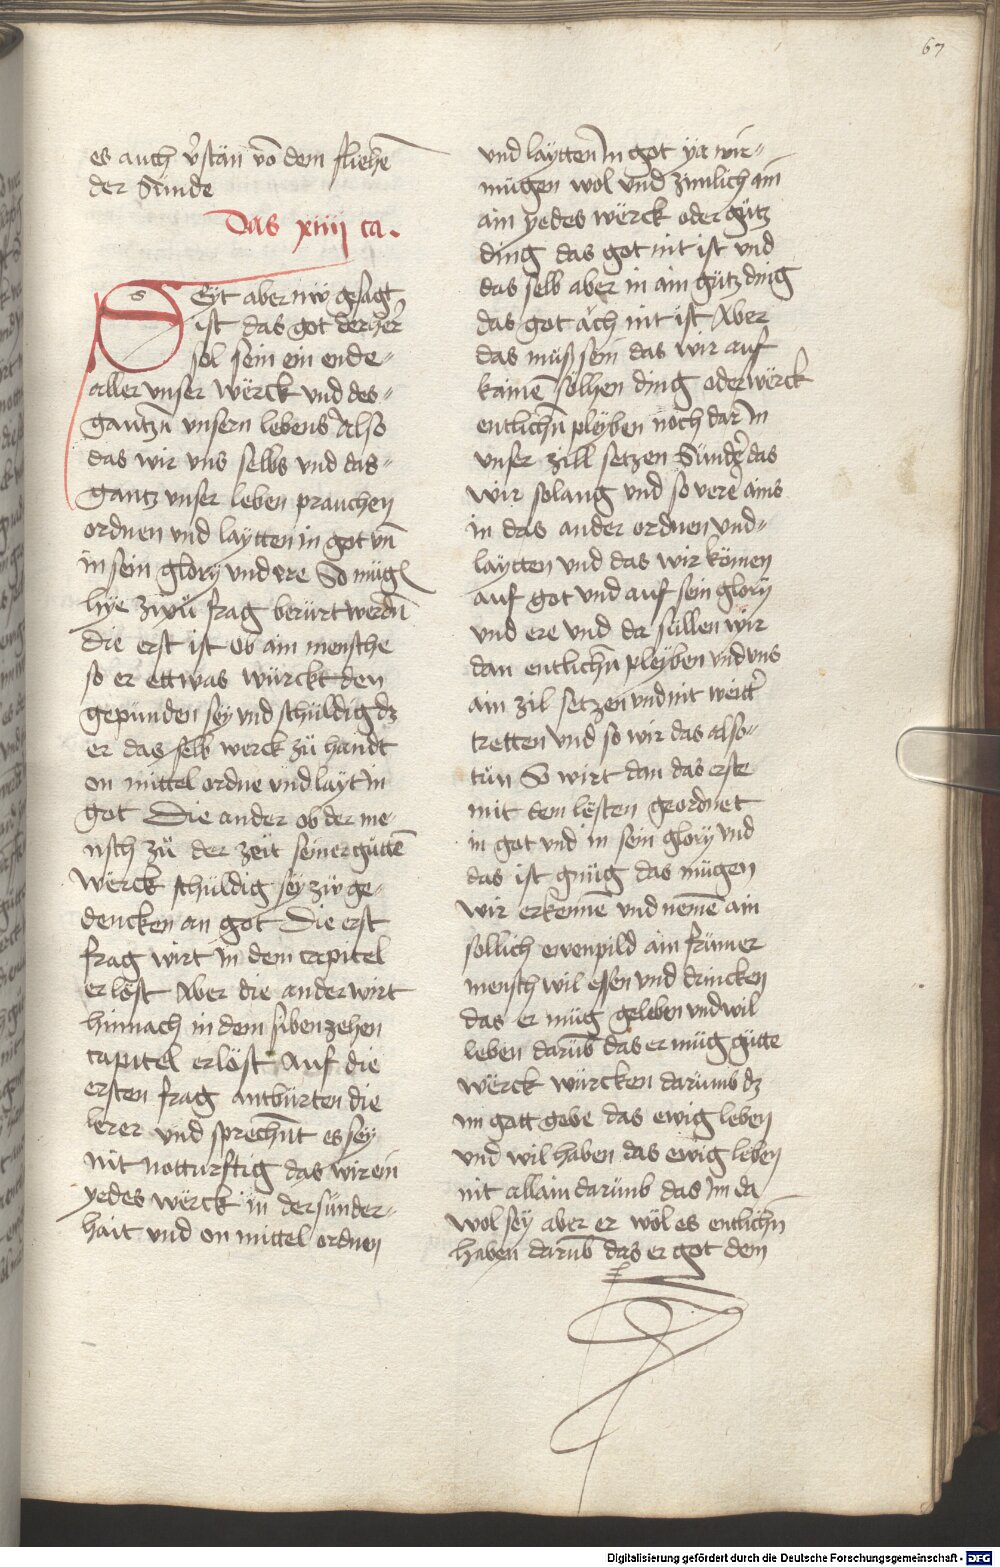 67
es auch v̄stän vō dem fliehē
der Sünde
Das xiiij ca.
SEyt aber nw gesagt
ist das got der her̄
sol sein ein ende
aller vnser wërck vnd des
gantzn̄ vnsern lebens Also
das wir vns selbs vnd das
gantz vnser leben prauchen
ordnen vnd laytten in got vn̄
in sein glory vnd ere So müg
hye zwü frag berürt werdn̄
die erst ist ob ain mensche
so er ettwas würckt den
gepunden sey vnd schüldig dz
er das selb werck zü handt
on mittel ordne vnd layt in
got Die ander ob der me
nsch zü der zeit seiner güttē
wërck schüldig sey zw ge
dencken an got Die erst
frag wirt in dem capitel
erlöst Aber die ander wirt
hinnach in dem siben zehen
capitel erlöst Auf die
ersten frag antbürten die
lerer vnd sprechn̄t es sey
nit notturftig das wir ein
yedes wërck in der sünder
hait vnd on mittel ordnen
vnd laytten in got ya wir
mügen wol vnd zimlich ain
ain yedes wërck oder gütz
ding das got nit ist vnd
das selb aber in ain gütz ding
das got ach nit ist Aber
das müß sein das wir auf
kainē sölhen ding oder wërck
entlichn̄ pleyben noch dar in
vnser zill setzen Sünder das
wir solang vnd so vere ains
in das ander ordnen vnd
laytten vnd das wir kömen
auf got vnd auf sein glory
vnd ere vnd da süllen wir
dan entlichn̄ pleyben vnd vns
ain zil setzen vnd nit weitt̄
tretten vnd so wir das also
tün So wirt dan das erste
mit dem lësten geordnet
in got vnd in sein glory vnd
das ist gnüg das mügen
wir erkennē vnd nemē ain
sollich ewenpild ain frümer
mensch wil essen vnd drincken
das er müg geleben vnd wil
leben darūb das er müg gütte
wërck würcken darümb dz
im gott gebe das ewig leben
vnd wil haben das ewig leben
nit allain darümb das im da
wol sey aber er wöl es entlichn̄
haben darūb das er got dem
Digitalisierung gefördert durch die Deutsche Forschungsgemeinschaft - DFG